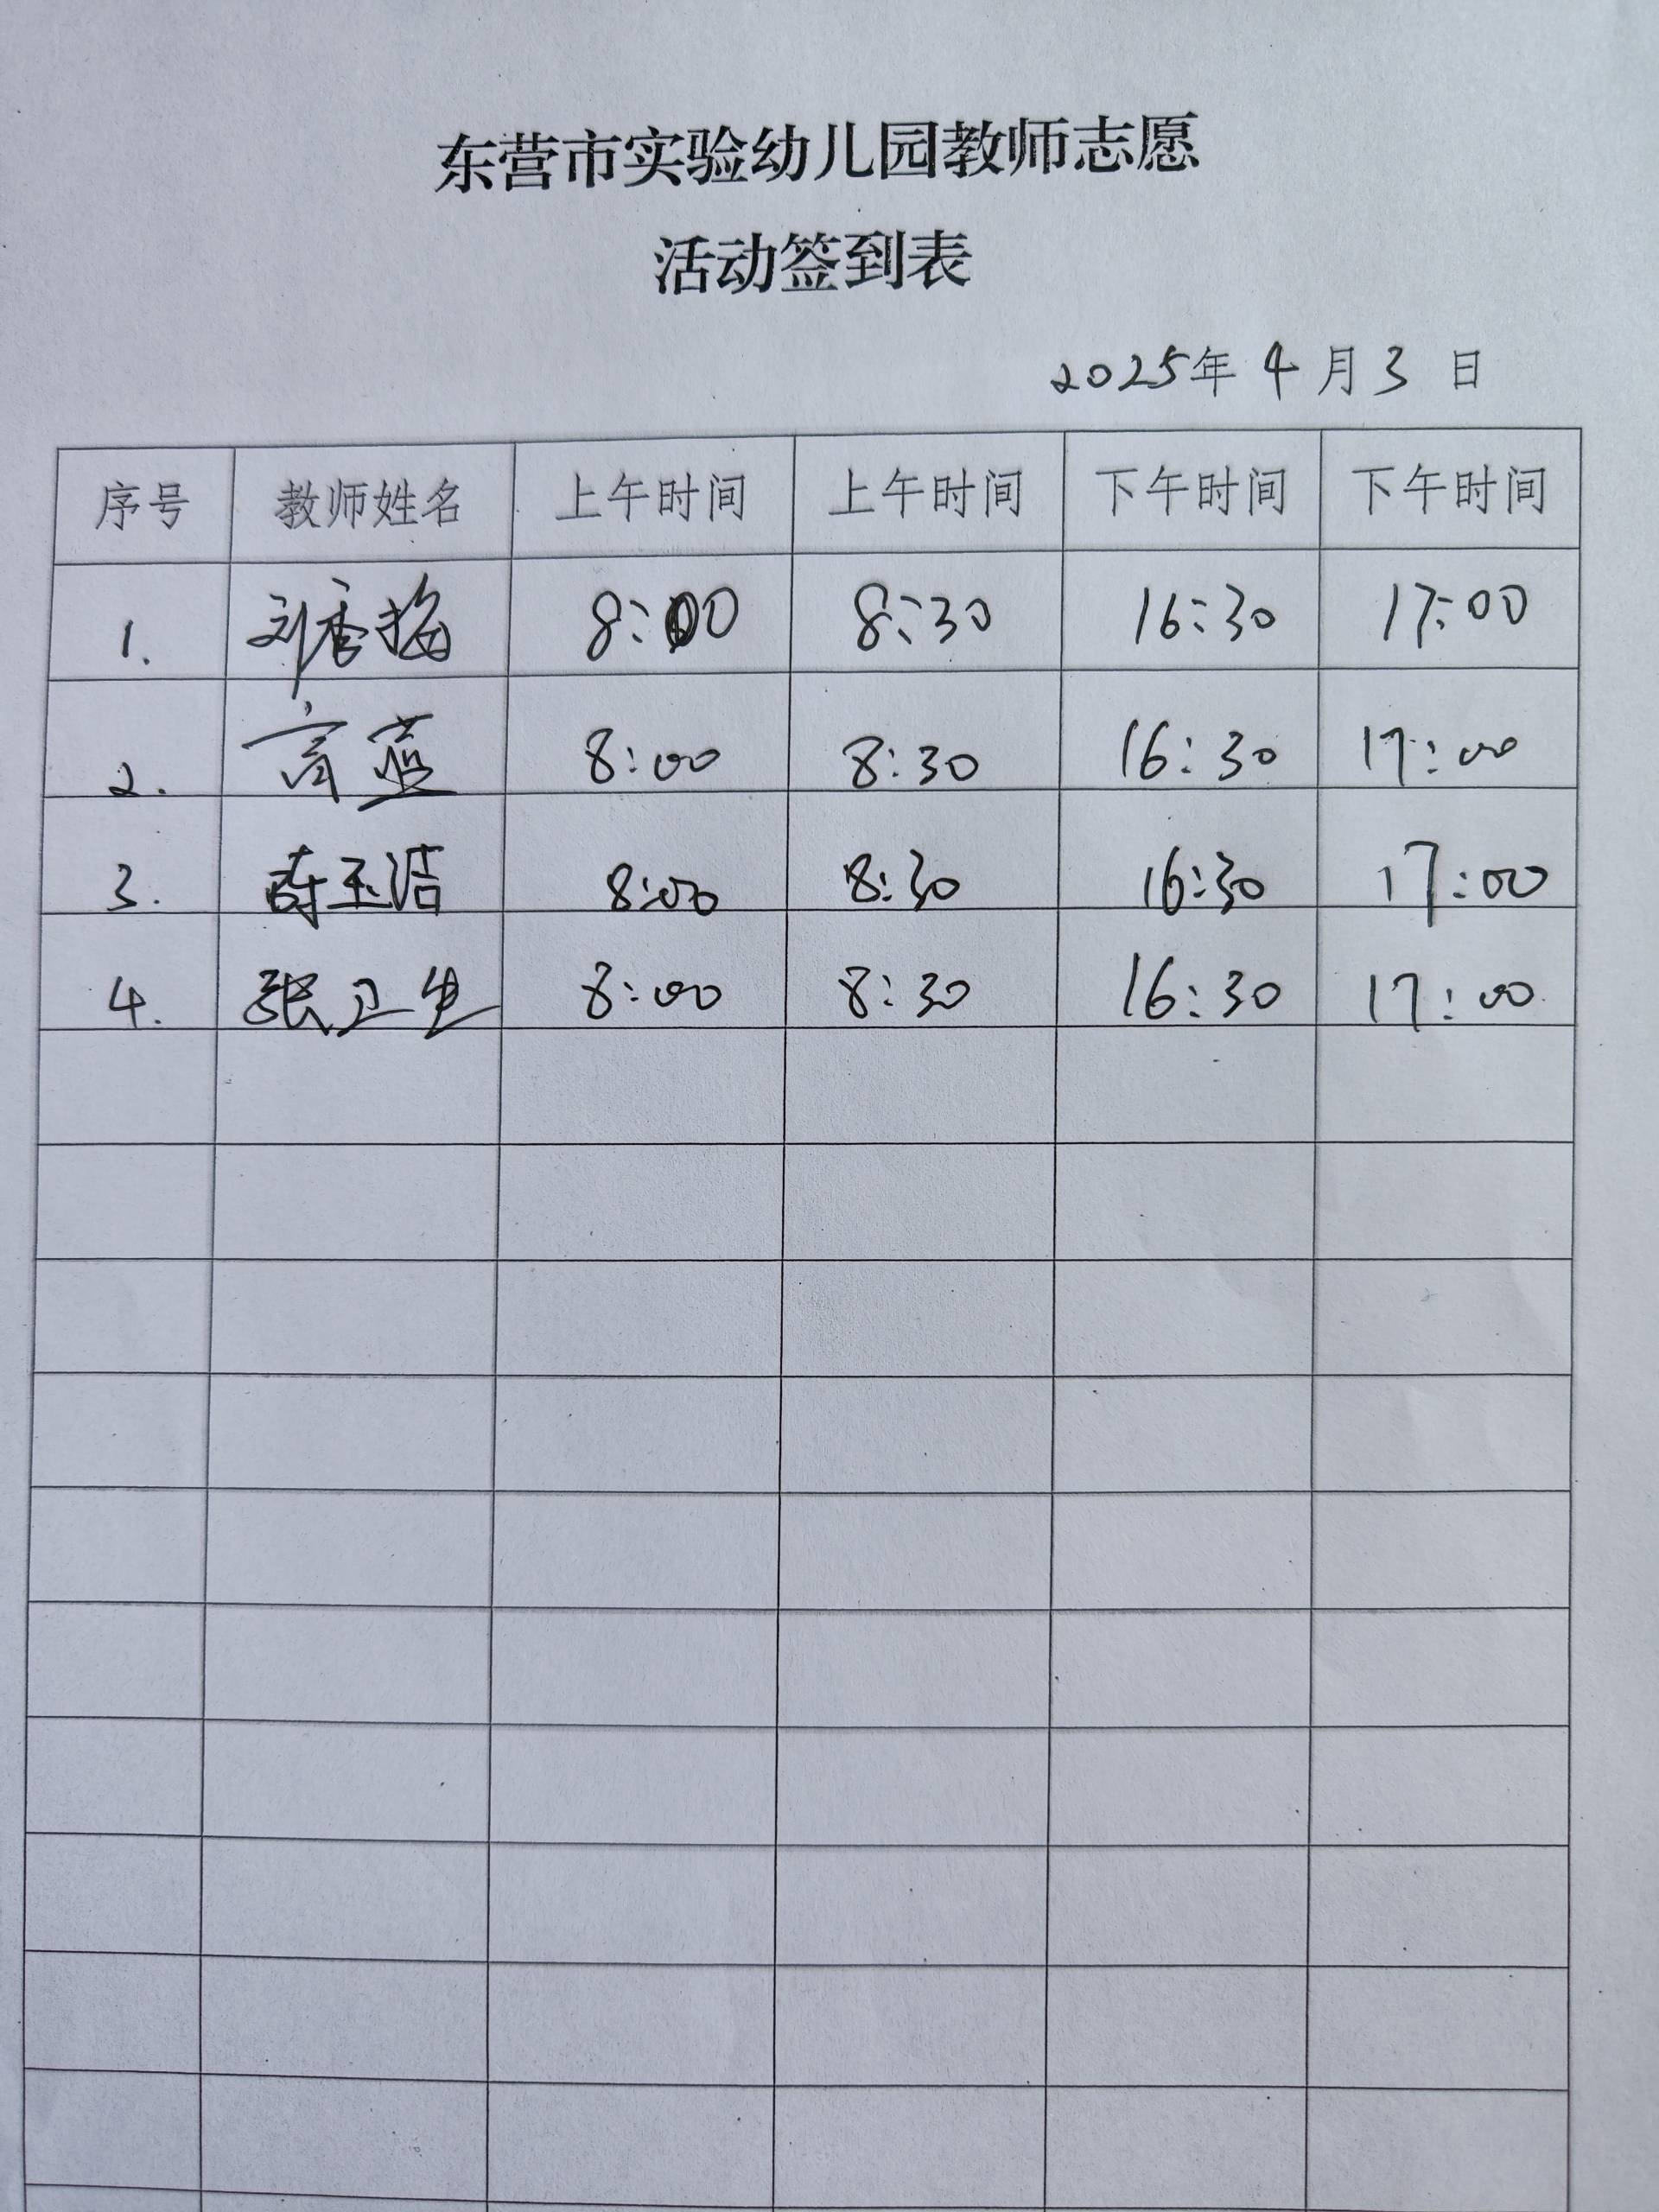 东营市实验幼儿园教师志愿
活动签到表
2025年 4 月 3 日
序号 教师姓名 上午时间 上午时间 下午时间 下午时间
1. 刘香梅 8:00 8:30 16:30 17:00
2. 高蓝 8:00 8:30 16:30 17:00
3. 玉洁 8:00 8:30 16:30 17:00
4. 张卫生 8:00 8:30 16:30 17:00